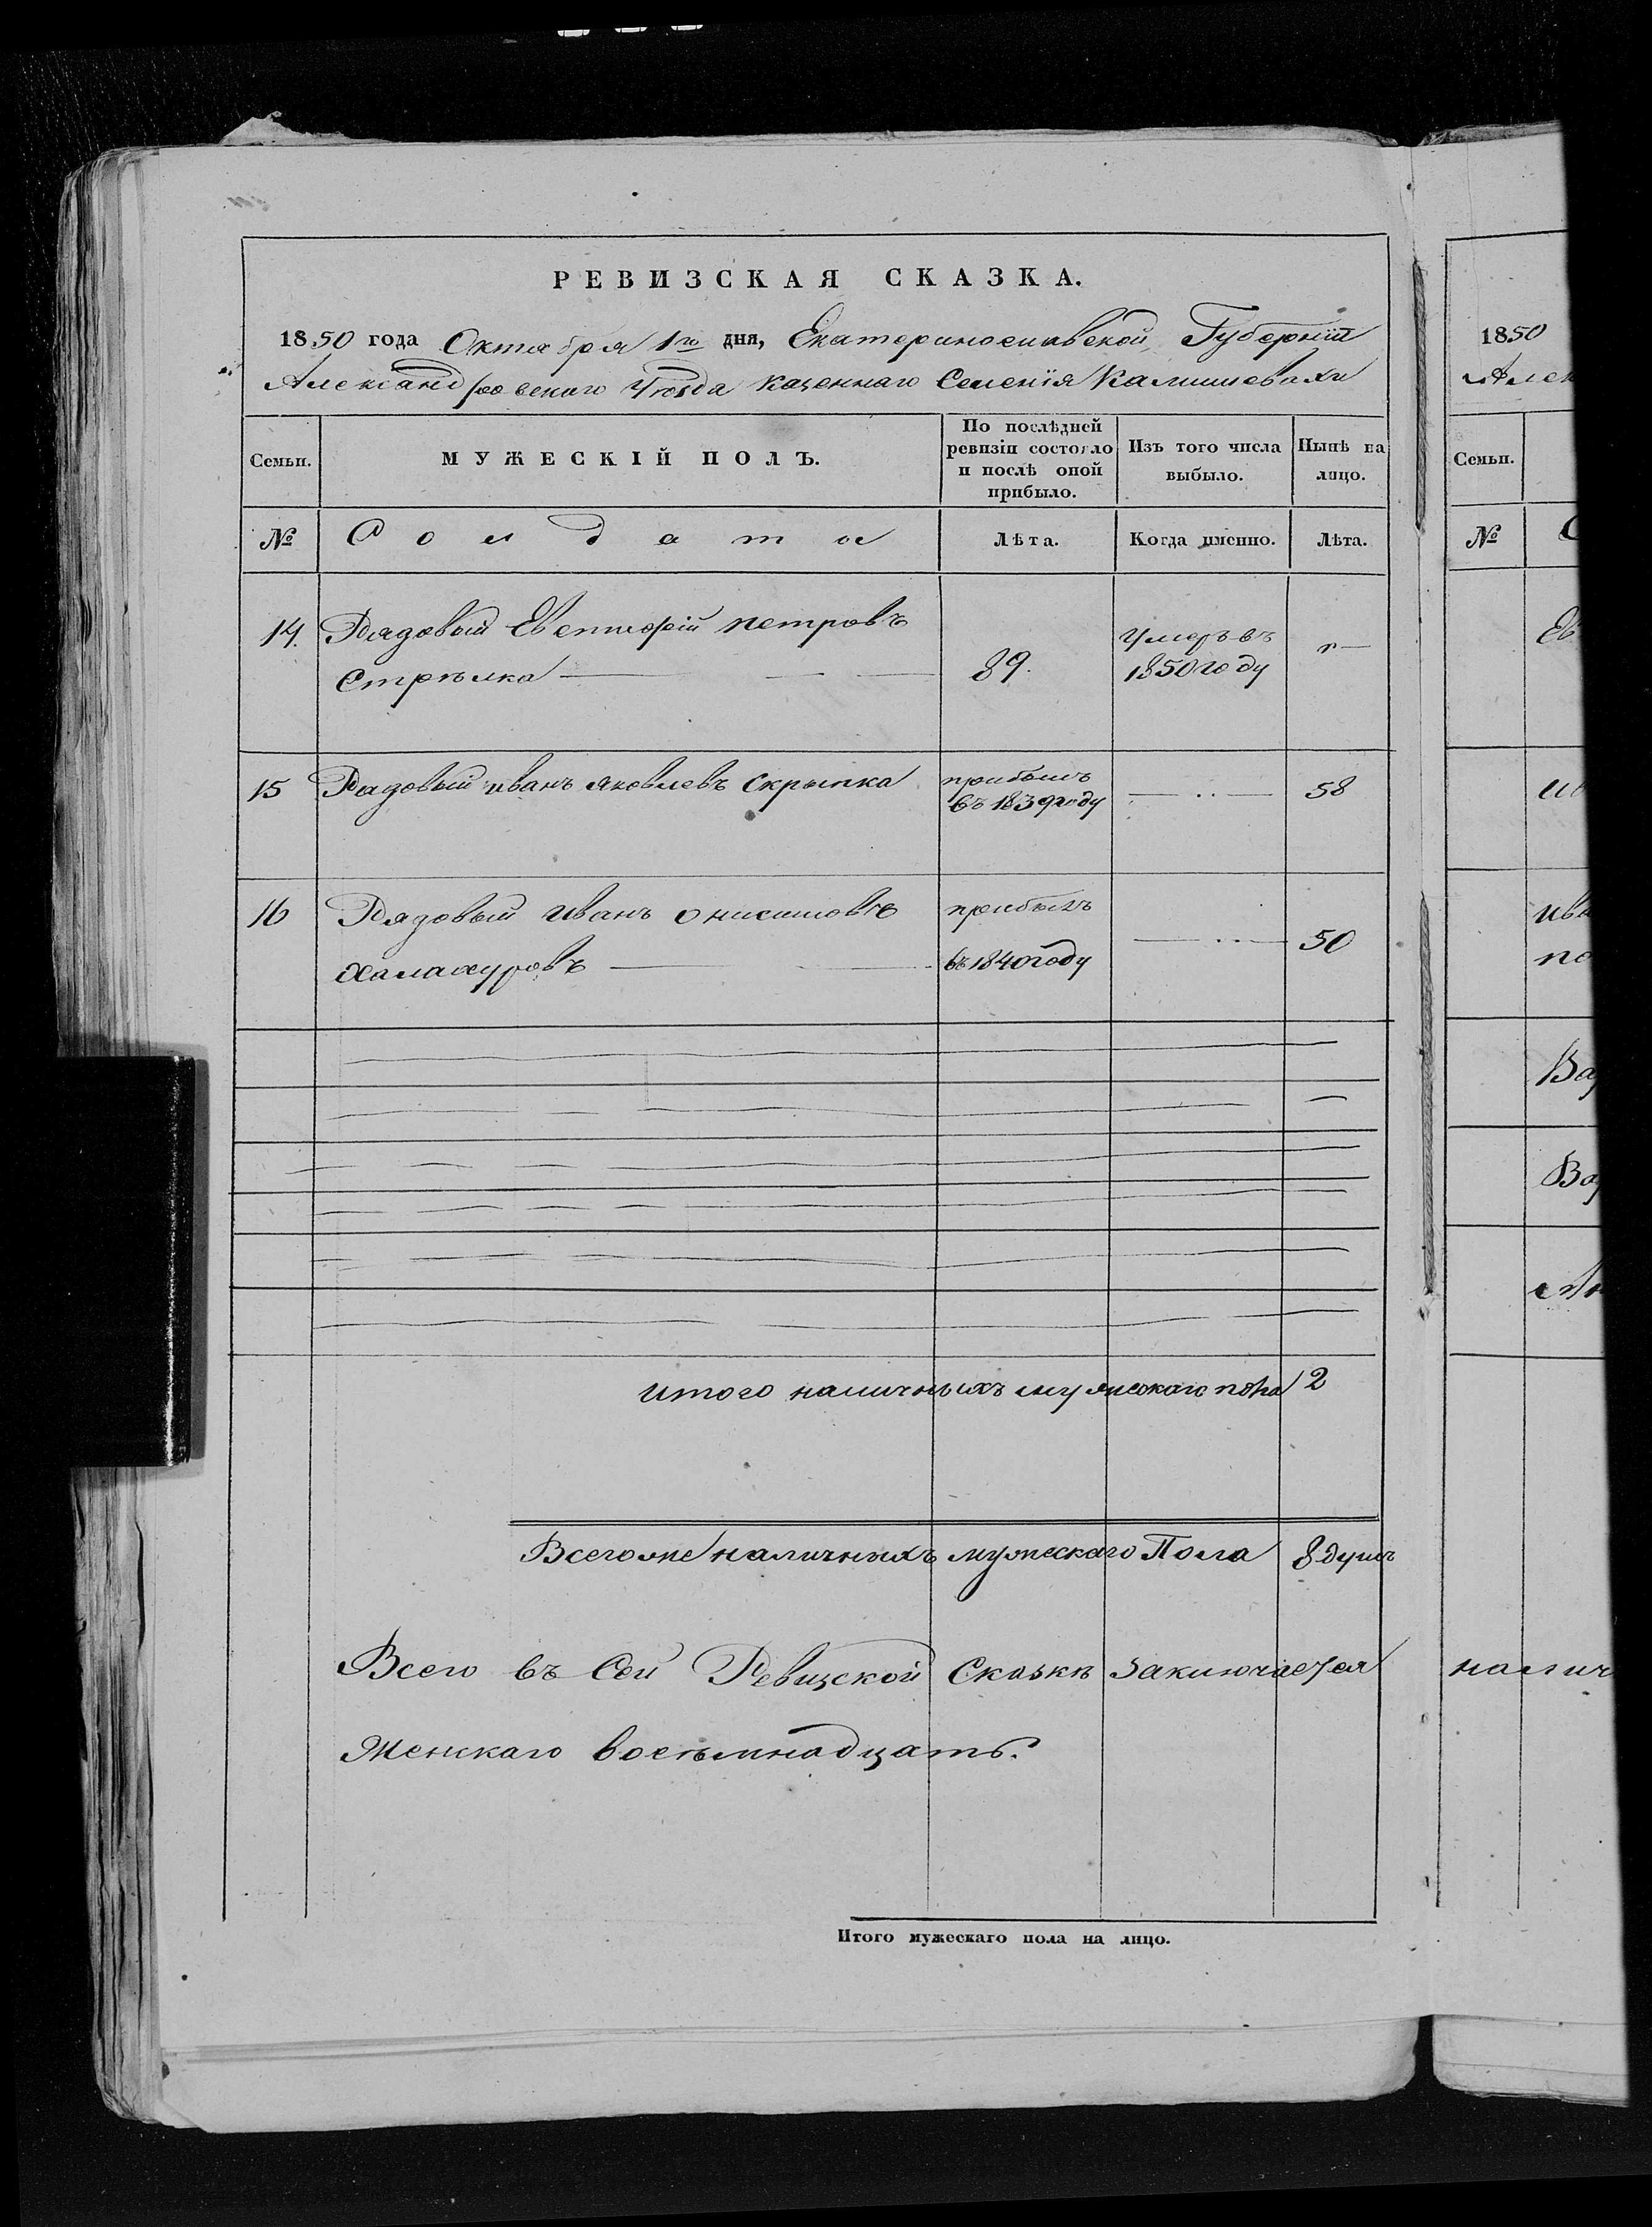 РЕВИЗСКАЯ СКАЗКА.
1850 года Октября 1го дня, Екатеринославской Губерніи
Александровскаго Уѣзда казеннаго Селенія Камышевахи
Семьи.
МУЖЕСКІЙ ПОЛЪ.
По послѣдней ревизіи состояло и послѣ оной прибыло.
Изъ того числа выбыло.
Нынѣ на лицо.
№
Солдаты
Лѣта.
Когда именно.
Лѣта.
14. Рядовый Евстифій петровъ
Стрѣлка 89. Умеръ въ 1850 году
15 Рядовый иванъ яковлевъ Скрыпка прибылъ въ 1839 году 58
16 Рядовый Иванъ Онисимовъ прибылъ
Халахуровъ въ 1840 году 50
итого наличныхъ мужескаго пола 2
Всего же наличныхъ мужескаго Пола 8 душъ
Всего въ Сей Ревизской Сказкѣ Заключается
Женскаго восемьнадцать.
Итого мужескаго пола на лицо.
1850
Алек
Семьи.
№
Ев
ив
ива
по
Ва
налич